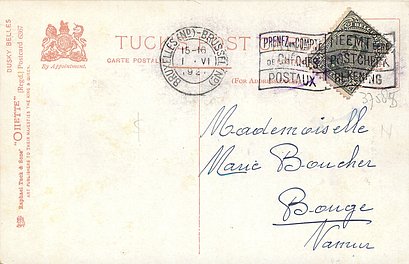 DUSKY BELLES
By Appointment.
Raphael Tuck & Sons' "OILETTE" (Regd.) Postcard 6567
ART PUBLISHERS TO THEIR MAJESTIES THE KING & QUEEN.
TUCK'S POST
CARTE POSTALE
(For Address
BRUXELLES (ND)-BRUSSEL (ND)
15-16
1 · VI
192
PRENEZ UN COMPTE
DE CHÈQUES
POSTAUX
NEEMT EENE
POSTCHECK
REKENING
Mademoiselle
Marie Boucher
Bouge
Namur